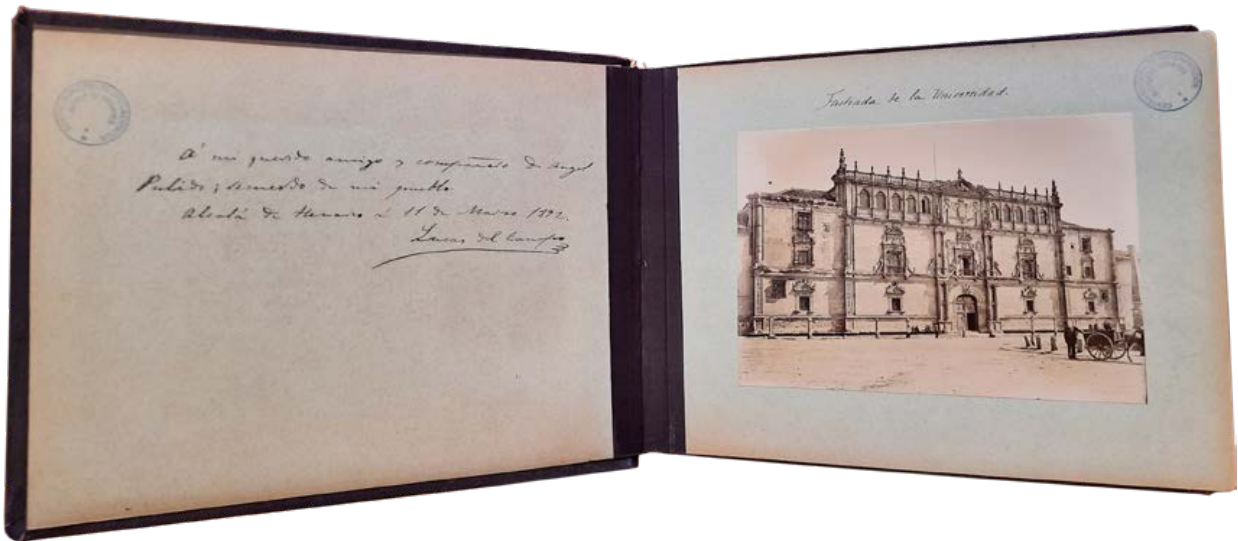 Á mi querido amigo y compañero Dn Angel
Pulido; recuerdo de mi pueblo
Alcalá de Henares á 11 de Marzo 1892.
Lucas del Campo
Fachada de la Universidad.